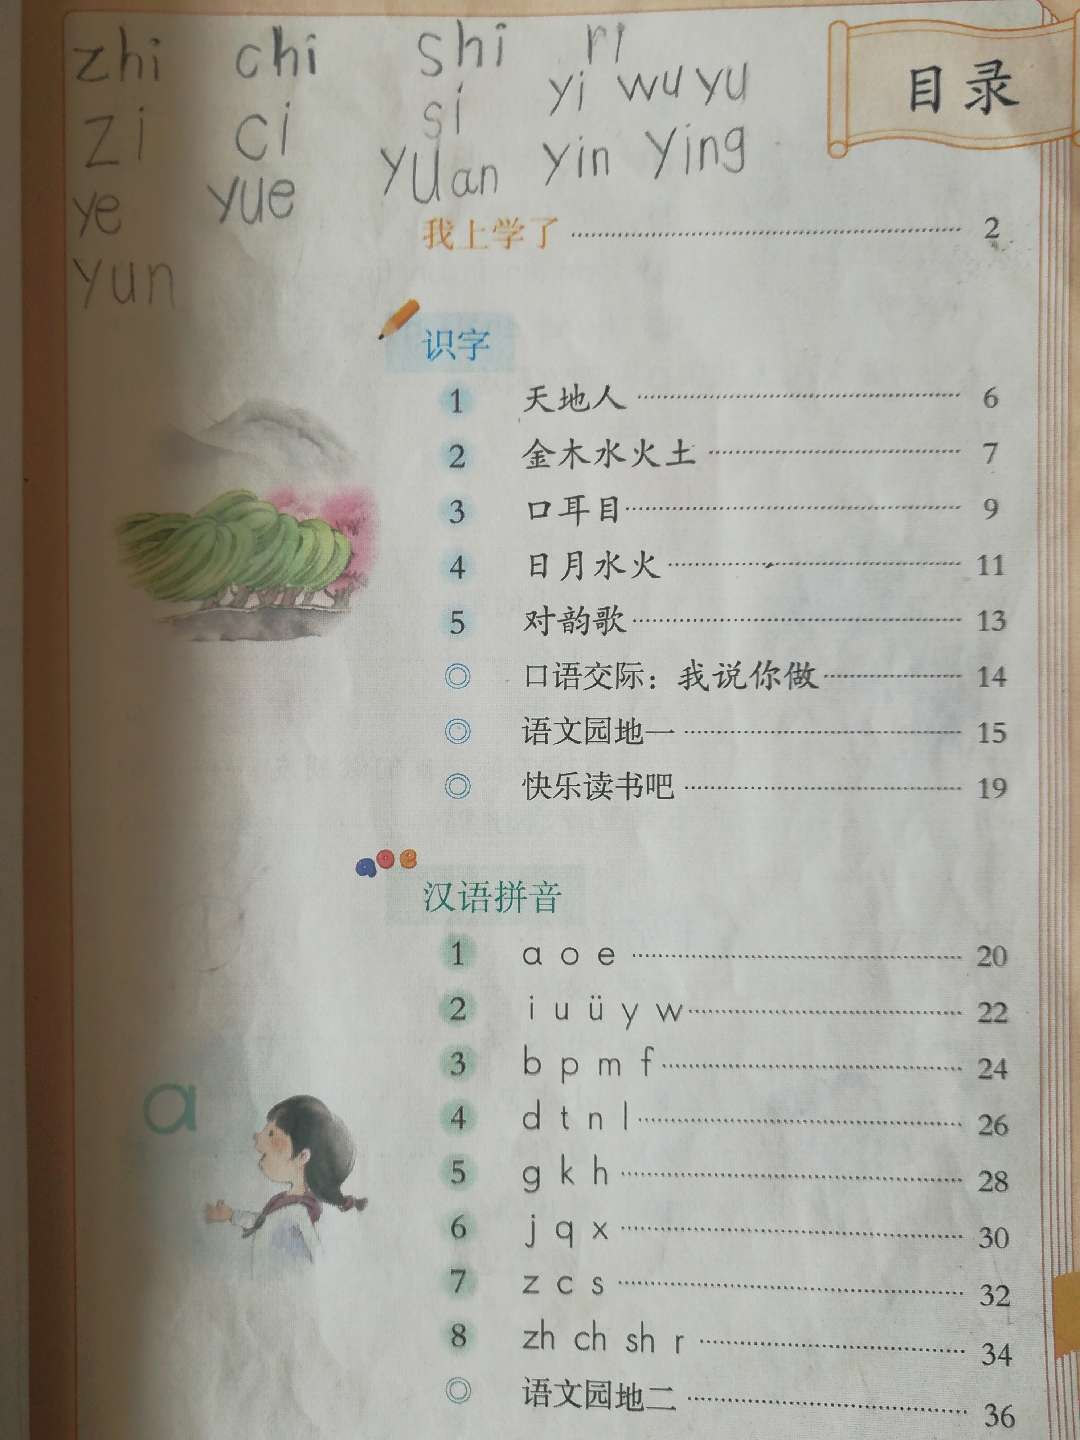 zhi chi shi ri
目录
zi ci si yi wu yu
ye yue yuan yin ying
我上学了 2
yun
识字
1 天地人 6
2 金木水火土 7
3 口耳目 9
4 日月水火 11
5 对韵歌 13
◎ 口语交际：我说你做 14
◎ 语文园地一 15
◎ 快乐读书吧 19
a o e
汉语拼音
1 a o e 20
2 i u ü y w 22
3 b p m f 24
a
4 d t n l 26
5 g k h 28
6 j q x 30
7 z c s 32
8 zh ch sh r 34
◎ 语文园地二 36